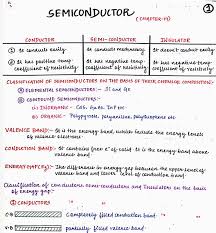 SEMICONDUCTOR
(CHAPTER-14)
3
CONDUCTOR SEMI-CONDUCTOR INSULATOR
① It conducts easily. ① It conducts moderately ① It doesn't conduct easily
② It has positive temp. coefficient of resistivity ② It has negative temp. coefficient of resistivity ② It has negative temp. coefficient of resistivity
CLASSIFICATION OF SEMICONDUCTORS ON THE BASIS OF THEIR CHEMICAL COMPOSITION:-
① ELEMENTAL SEMICONDUCTORS:- Si and Ge
② COMPOUND SEMICONDUCTORS:-
(i) INORGANIC:- CdS, GaAs, InP etc
ORGANIC:- Polypyrrole, polyaniline, polythiophene etc
VALENCE BAND:- It is the energy band which include the energy levels of valence electrons.
CONDUCTION BAND:- It contains free e⁻ of it is the energy band above valence band.
ENERGY GAP (Eg):- The difference in energy between the upper level of valence band and lower level of conduction band.
Classification of conductors semiconductors and Insulators on the basis of energy gap:-
① CONDUCTORS
C·B completely filled conduction band
V·B partially filled valence band